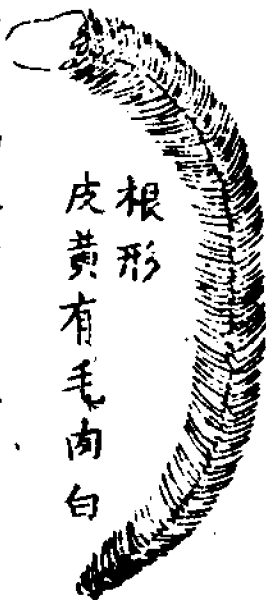 根形
皮黃有毛肉白